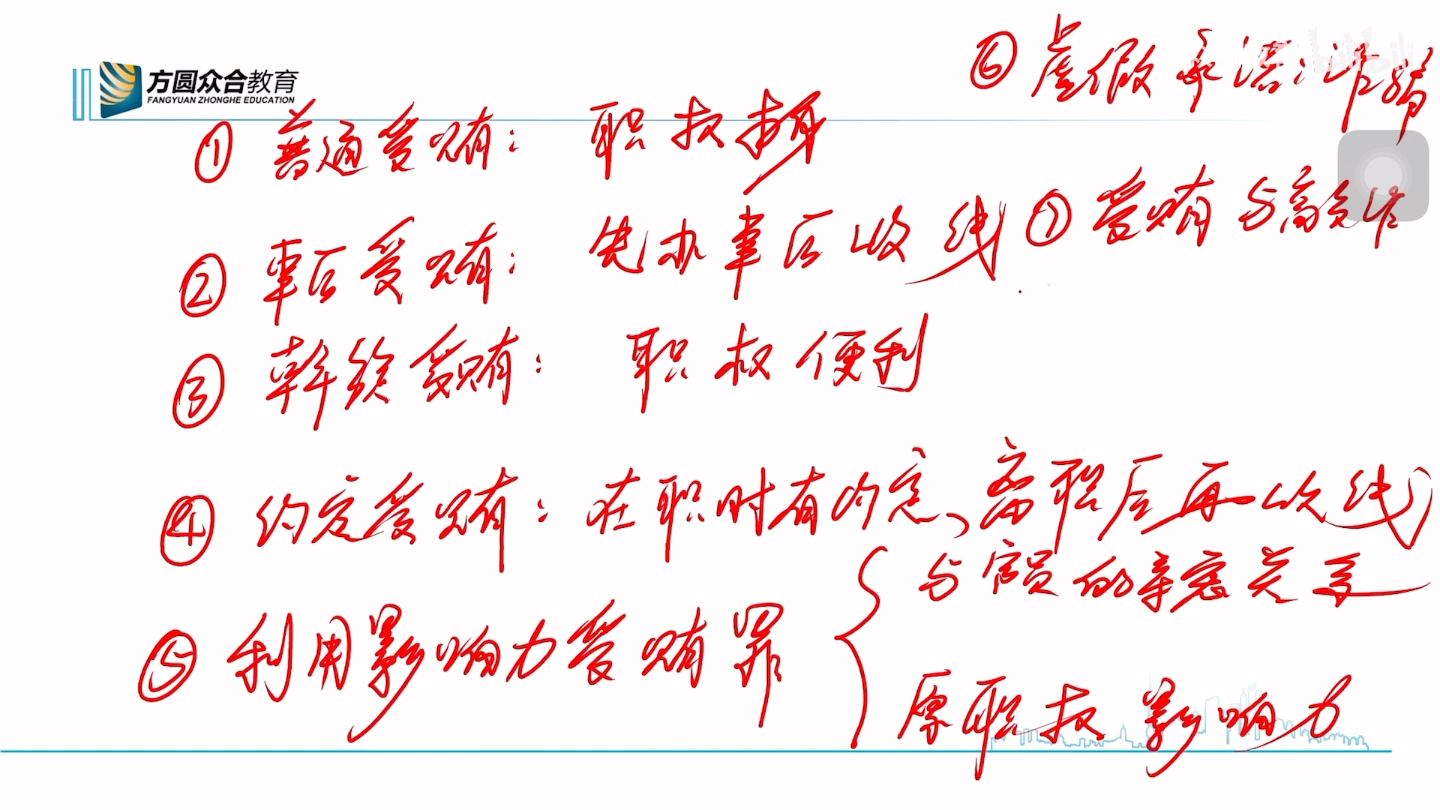 方圆众合教育
FANGYUAN ZHONGHE EDUCATION
① 普通受贿：职权本身
② 事后受贿：先办事后收钱
③ 斡旋受贿：职权便利
④ 约定受贿：在职时有约定、离职后再收钱
⑤ 利用影响力受贿罪
与官员的亲密关系
原职权影响力
⑥ 虚假承诺：
⑦ 受贿与
bilibili